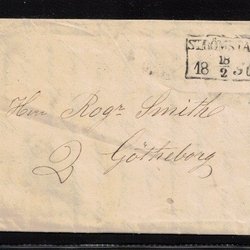 STRÖMSTA
18 18/2 5
Herr Rogr Smith
2 Götheborg